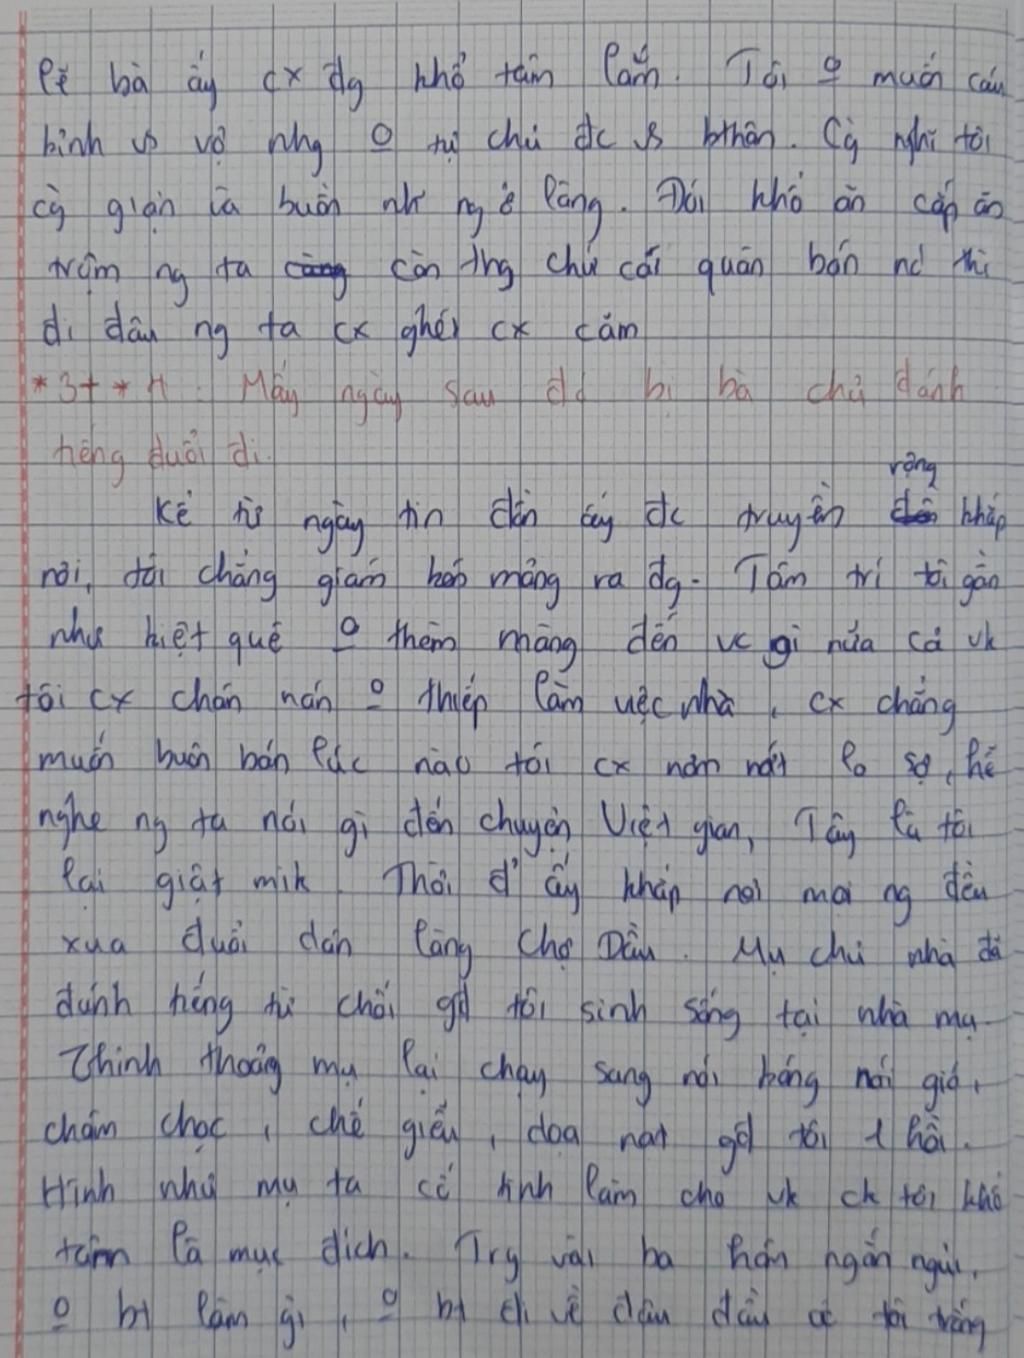 lẽ bà ấy cx đg khổ tâm lắm. Tôi o muốn cáu
bỉnh vs vợ nhg o tự chủ đc vs bthân. Cg nghĩ tôi
cg giận là buồn nh ng ở làng. Đói khổ ăn cắp ăn
trộm ng ta còn thg chứ cái quân bán nc thì
đi đâu ng ta cx ghét cx cấm
*3+* Mấy ngày sau đó bị bà chủ đánh
tiếng đuổi đi.
Kể từ ngày tin đồn ấy đc truyền rộng khắp
nơi, tôi chẳng giám bén mảng ra đg. Tâm trí tôi gần
như kiệt quệ o thèm màng đến vc gì nữa cả vk
tôi cx chán nản o thiếp làm việc nhà, cx chẳng
muốn buôn bán lúc nào tôi cx nơm nớt lo sợ, hễ
nghe ng ta nói gì đến chuyện Việt gian, Tây là tôi
lại giật mik. Thời đ' ấy khắp nơi mọi ng đều
xua đuổi dân làng Chợ Dầu. Mụ chủ nhà đã
đánh tiếng từ chối gđ tôi sinh sống tại nhà mụ
Thỉnh thoảng mụ lại chạy sang nói bóng nói gió,
châm chọc, chế giễu, doạ nạt gđ tôi 1 hồi.
Hình như mụ ta cố tình làm cho vk ck tôi khổ
tâm là mục đích. Trg vài ba hôm ngắn ngủi,
o bt làm gì, o bt đi về đâu đây để tôi trống